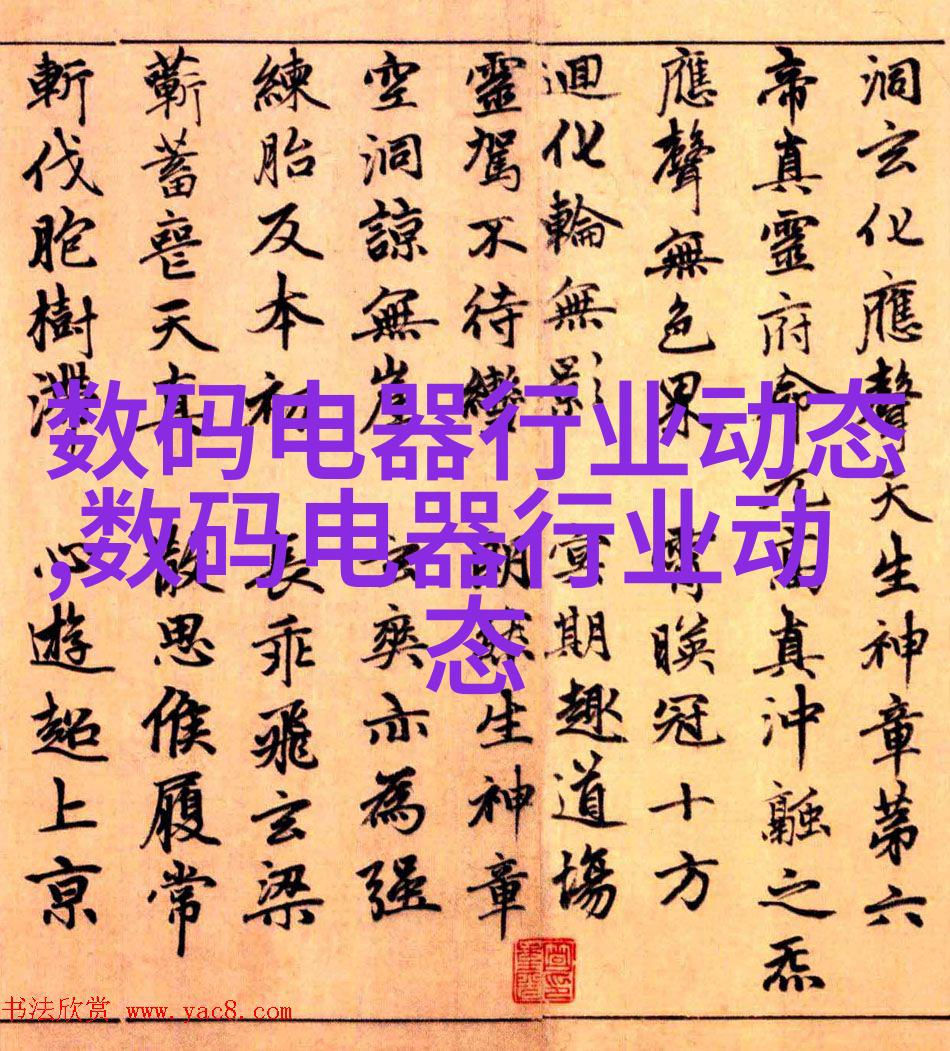 洞玄化應聲天生神章第六
帝真靈府命元真沖融之炁
應聲無色界 霄映冠十方
迴化輪無影 冥期趣道場
靈駕不待轡 朗然生神章
空洞諒無崖 玄爽亦為強
練胎反本初 長乖飛玄梁
蘄蓄喪天真 散思候履常
斬伐胞樹滯 心遊超上京
数码电器行业动态
,数码电器行业动
态
书法欣赏 www.yac8.com